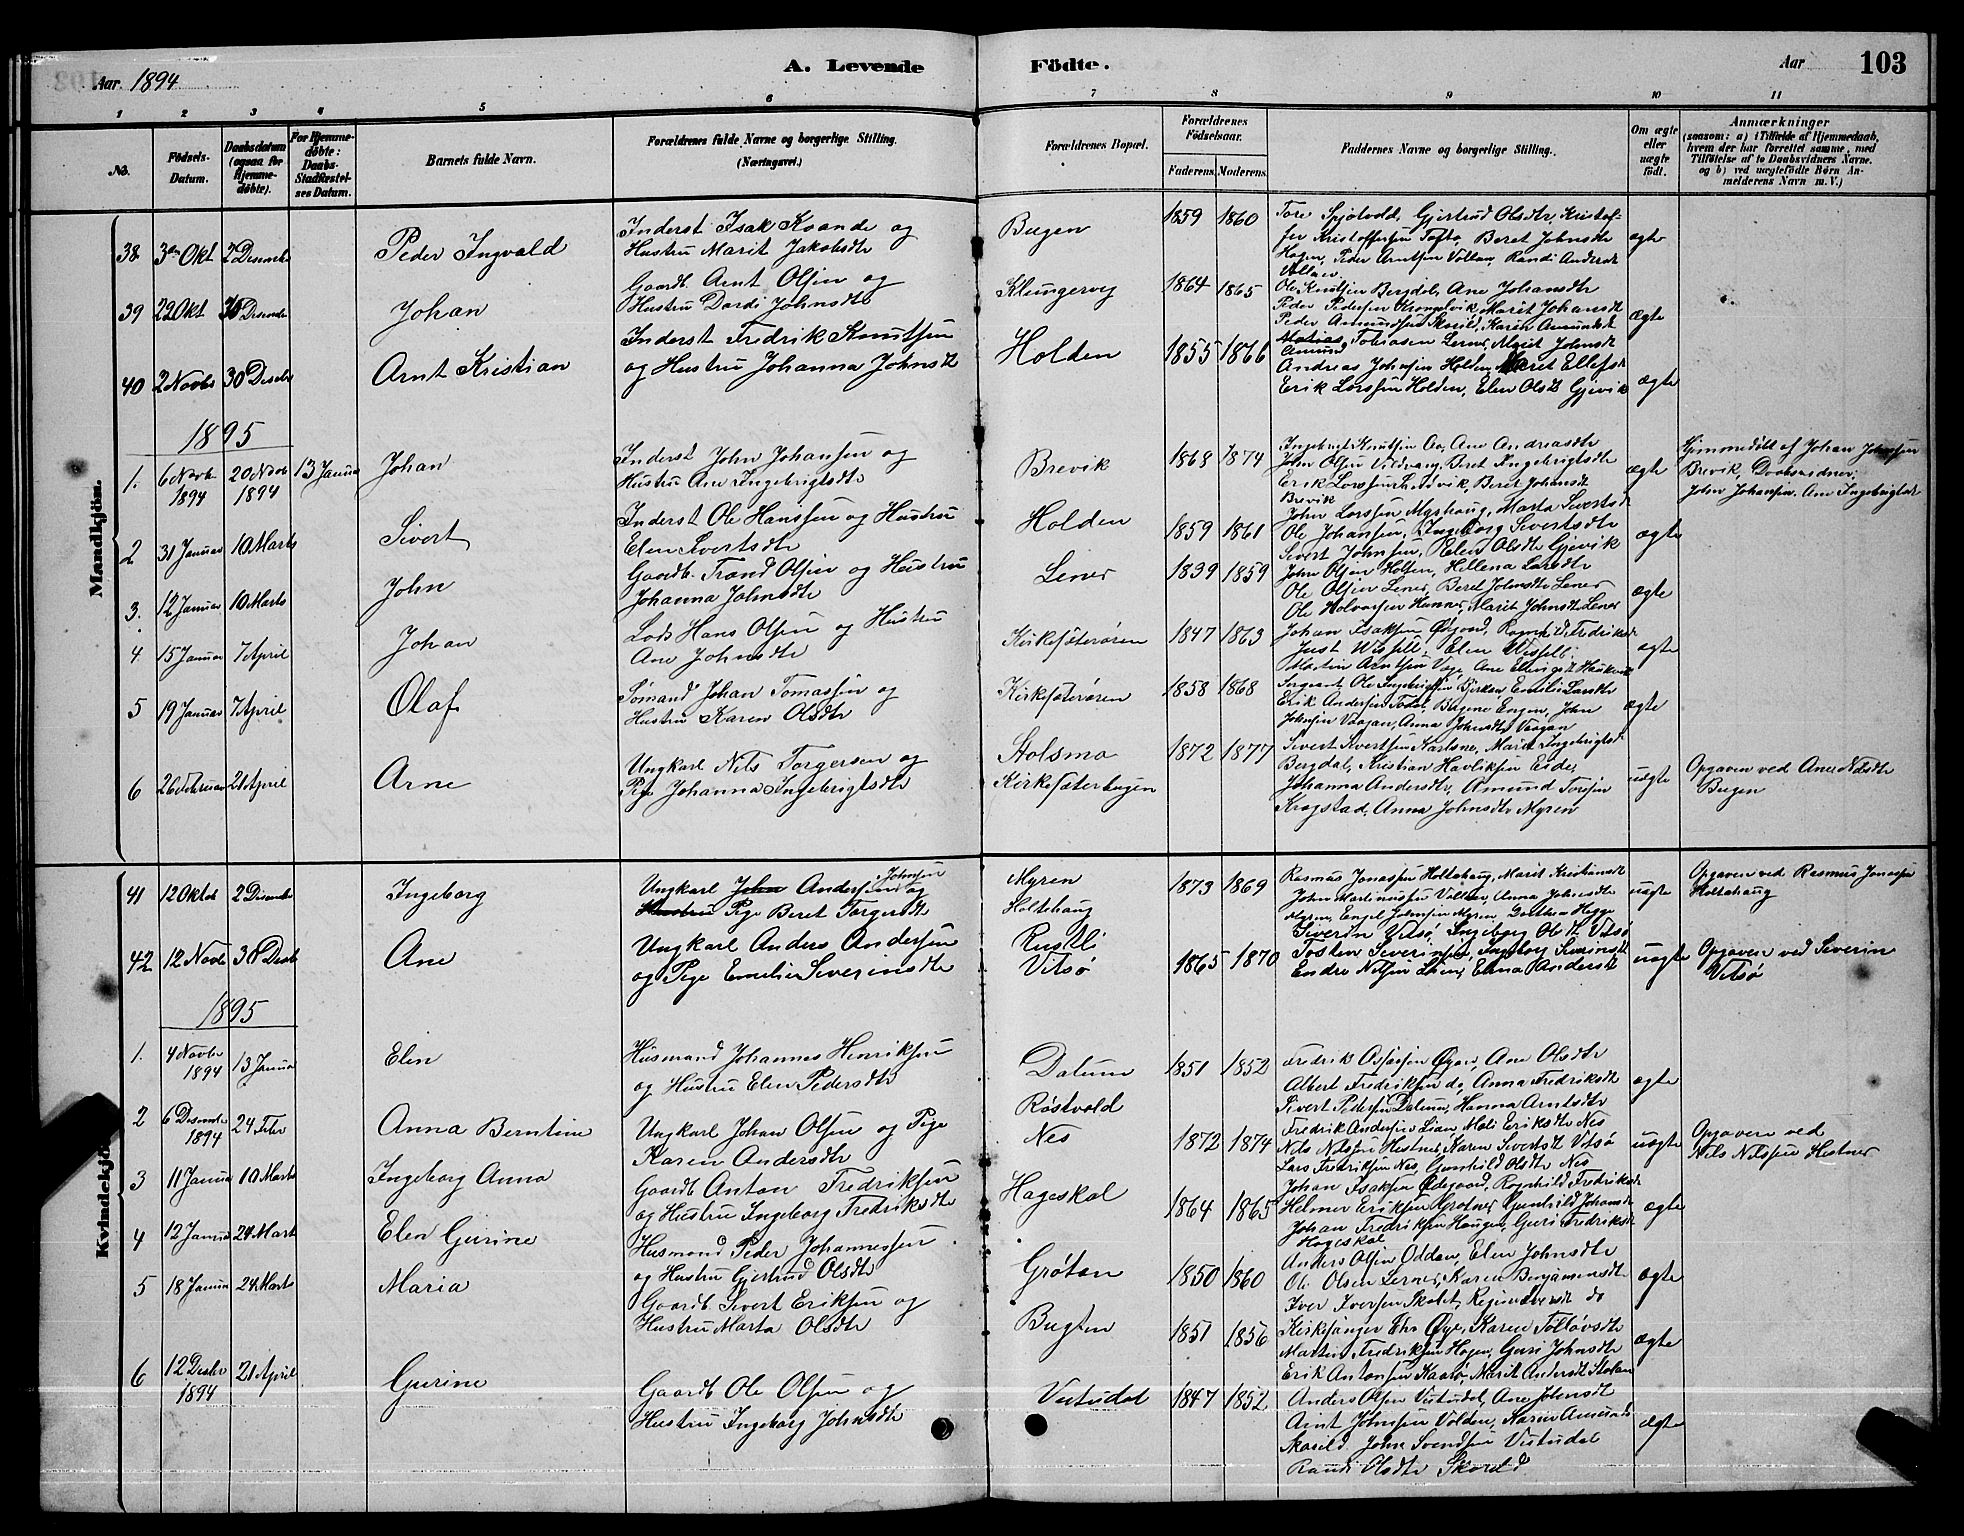 Aar 1894
A. Levende
Födte.
Aar
103
1 2 3 4 5 6 7 8 9 10 11
No.
Födsels-Datum.
Daabsdatum (ogsaa for Hjemme-döbte).
For Hjemme-döbte: Daabs-Stadfæstel-ses Datum.
Barnets fulde Navn.
Forældrenes fulde Navne og borgerlige Stilling. (Næringsvei.)
Forældrenes Bopæl.
Forældrenes Födselsaar.
Faderens. Moderens.
Faddernes Navne og borgerlige Stilling.
Om ægte eller uægte födt.
Anmærkninger
(saasom: a) i Tilfælde af Hjemmedaab, hvem der har forrettet samme, med Tilföielse af to Daabsvidners Navne. og b) ved uægtefödte Børn Anmelderens Navn m. V.)
Mandkjön.
38 30 Okt 2 Desembr Peder Ingvald
Inderst Isak Kvande og
Hustru Marit Jakobsdtr
Bugen 1859 1860
Tore Spjotvold, Gjertrud Olsdtr, Kristof-
fer Kristoffersen Tofte, Beret Johnsdtr
Hagen, Peder Arntsen Vollan, Randi Andersdt
Vollan.
ægte
39 22 Okt 30 Desembr Johan
Gaardb. Arnt Olsen og
Hustru Dordi Johnsdtr
Klungervig 1864 1865
Ole Knutsen Bergdal, Ane Johansdtr
Peder Pedersen Krongelvik, Marit Johansdt
Peder Amundsen Skorild, Karen Amundsdt
ægte
40 2 Novbr 30 Desbr Arnt Kristian
Inderst Fredrik Knutsen
og Hustru Johanna Johnsdt
Holden 1855 1866
Amund Tobiasen Lener, Marit Johnsdt
Andreas Johnsen Holden, Maret Ellefsdt
Erik Larssen Holden, Elen Olsdt Gjevik
ægte
1895
1. 6 Novb. 1894 20 Novb 1894 13 Januar Johan
Inderst John Johansen og
Hustru Ane Ingebrigtsdtr
Brevik 1868 1874
Ingebrigt Knutsen Oo, Ane Andreasdtr
John Olsen Vildvang, Beret Ingebrigtsdtr
Erik Larssen Ledsvik, Beret Johnsdt
Brevik
ægte
Hjemmedøbt af Johan Johnsen
Brevik, Daabsvidner:
John Johansen, Ane Ingebrigtsdt
2 31 Januar 10 Marts Sivert
Inderst Ole Hanssen og Hustru
Elen Sivertsdtr
Holden 1859 1861
John Larssen Myrhaug, Marta Sivertsdt
Ole Johansen, Ingeborg Sivertsdtr
Sivert Johnsen, Elen Olsdtr Gjevik
ægte
3. 12 Januar 10 Marts John
Gaardb. Trond Olsen og Hustru
Johanna Johnsdtr
Lener 1839 1859
John Olsen Holden, Hellena Larsdtr
Ole Olsen Lener, Beret Johnsdtr Lener
Ole Halvorsen Hamner, Marit Johnsdt Lener
ægte
4 15 Januar 7 April Johan
Lods Hans Olsen og Hustru
Ane Johnsdtr
Kirkesæterøren 1847 1863
Johan Isaksen Ødegaard, Ragnh. Fredriksdt
Just Wessell, Elen Wessell,
Martin Arntsen Vage, Ane Ellingsdt Haukvik
ægte
5 19 Januar 7 April Olaf
Sømand Johan Tomassen og
Hustru Karen Olsdtr
Kirkesæterøren 1858 1868
Sergeant Ole Ingebrigtsen Bjerkan, Emelie Larsdtr
Erik Andersen Todal, Bergine Engen, John
Johnsen Vaagan, Anna Johnsdtr Vaagan
ægte
6 26 Februar 21 April Arne
Ungkarl Nils Torgersen og
Pige Johanna Ingebrigtsdtr
Stolsmo
Kirkesæterbugen
1872 1877
Sivert Sivertsen Karlsne, Marit Ingebrigtsdt
Bergdal, Kristian Havliksen Eider,
Johanna Andersdtr, Amund Toresen
Krogstad, Anna Johnsdtr Myren
uægte
Opgaven ved Ane Nilsdtr
Bugen
Kvindekjön
41 12 Oktob 2 Desembr Ingeborg
Ungkarl John Anders Johnsen og
Hustru Pige Beret Torgersdtr
Myren
Holtehaug
1873 1869
Rasmus Jonassen Holtehaug, Marit Kristiansdt
John Martinussen Vollan, Anna Johnsdtr
Myren, Engel Johnsen Myren, Dorthea Hegge
uægte
Opgaven ved Rasmus Jonassen
Holtehaug
42 12 Novbr 30 Desb Ane
Ungkarl Anders Andersen
og Pige Emelie Severinsdtr
Rustli
Vitsø
1865 1870
Severin Vitsø, Ingeborg Olsdt Vitsø
Tosten Severinsen, Ingeborg Severinsdt
Endre Nilsen Lien, Elina Andersdt
uægte
Opgaven ved Severin
Vitsø
1895
1. 4 Novbr 1894 13 Januar Elen
Husmand Johannes Henriksen
og Hustru Elen Pedersdtr
Dalum 1851 1852
Fredrik Assersen Øyan, Ane Olsdtr
Albert Fredriksen do, Anna Fredriksdt
Sivert Pedersen Dalum, Hanna Arntsdtr
ægte
2 6 Desembr 1894 24 Febr Anna Berntine
Ungkarl Johan Olsen og Pige
Karen Andersdtr
Røstvold
Nes
1872 1874
Fredrik Andersen Lian, Mali Eriksdtr Nes
Nils Nilssen Hestnes, Karen Sivertsdt Vitsø
Lars Fredriksen Nes, Gunhild Olsdtr Nes
uægte
Opgaven ved
Nils Nilssen Hestnes
3 11 Januar 10 Marts Ingeborg Anna
Gaardb. Anton Fredriksen
og Hustru Ingeborg Fredriksdtr
Hageskal 1864 1865
Johan Isaksen Ødegaard, Ragnhild Fredriksdt
Helmer Eriksen Grotnes, Gunhild Johansdt
Johan Fredriksen Haugen, Guri Fredriksdt
Hageskal
ægte
4 12 Januar 24 Mart Elen Gurine
Husmand Peder Johannessen
og Hustru Gjertrud Olsdtr
Grøtan 1850 1860
Anders Olsen Oddan, Elen Johnsdtr
Ole Olsen Lernes, Karen Benjaminsdtr
Iver Iversen Skalet, Regine Iversdt do
ægte
5 18 Januar 24 Marts Maria
Gaardb. Sivert Eriksen og
Hustru Marta Olsdtr
Bugten 1851 1856
Kirkesanger Chr Øye, Karen Tollevsdtr
Martin Fredriksen Hagen, Guri Johnsdtr
Erik Antonsen Kaarø, Marit Andersdt Stolan
ægte
6 12 Desbr 1894 21 April Gurine
Gaardb Ole Olsen og
Hustru Ingeborg Johnsdtr
Vistudal 1847 1852
Anders Olsen Vistudal, Ane Johnsdt
Arnt Johnsen Volden, Karen Amunds
Skorild. John Svendsen Vistudal
Randi Olsdtr Skorild
ægte